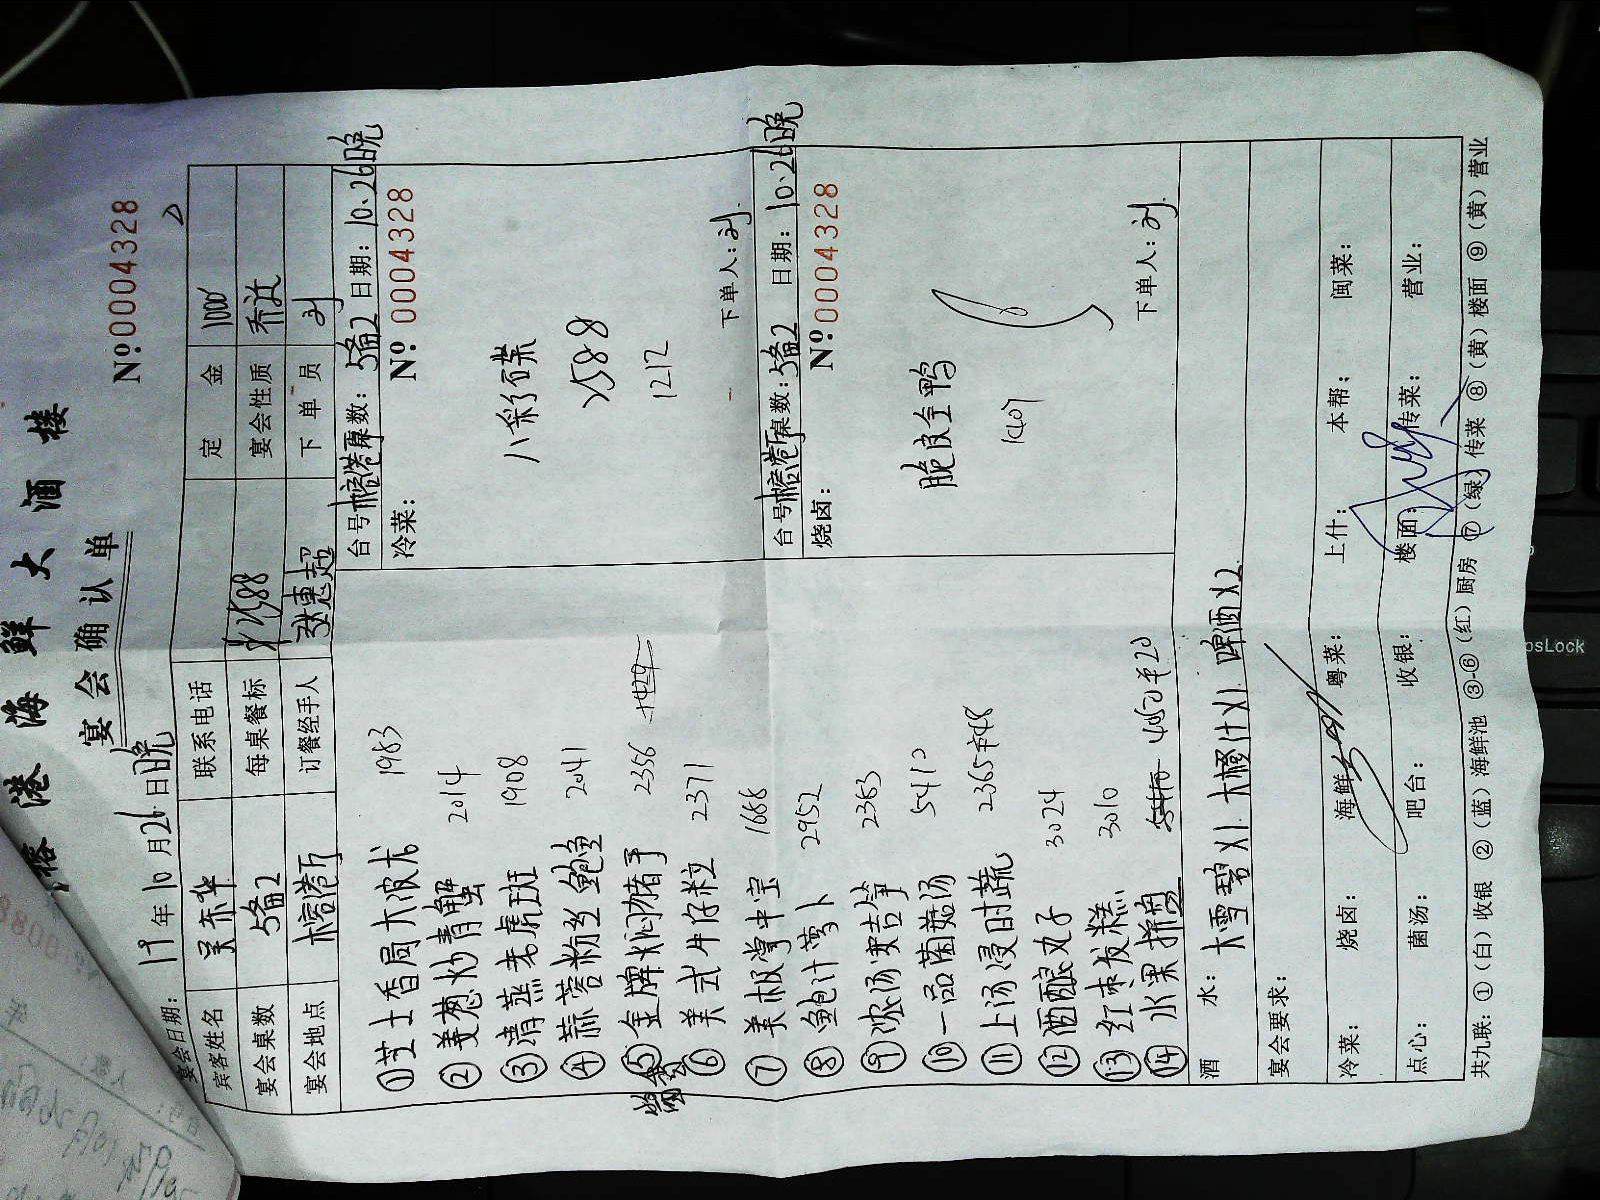 榕港海鲜大酒楼
宴会确认单
№:0004328
宴会日期: 19年10月26日晚
宾客姓名 联系电话 定金 1000
宴会桌数 5备2 每桌餐标 ¥2588 宴会性质 乔迁
宴会地点 榕港厅 订餐经手人 张惠超 下单员 刘
①芝士香焗大波龙 1983
②姜葱炒青蟹 2014
③清蒸老虎斑 1908
④蒜蓉粉丝鲍鱼 2041
⑤金牌焖猪手 2356
⑥美式牛仔粒 2371
⑦美极掌中宝 1688
⑧鲍汁萝卜 2952
⑨浓汤 2363
⑩一品菌菇汤 5410
⑪上汤浸时蔬 2365 48
⑫酒酿丸子 3024
⑬红枣发糕 3010
⑭水果拼盘
台号 榕港厅 桌数: 5备2 日期: 10.26晚
冷菜: №:0004328
八彩碟
2588
1212
下单人: 刘
台号 榕港厅 桌数: 5备2 日期: 10.26晚
烧卤: №:0004328
脆皮全鸭
1407
下单人: 刘
酒水: 大雪碧X1 大橙汁X1 啤酒X2
宴会要求:
冷菜: 烧卤: 海鲜: 粤菜: 上什: 本帮: 闽菜:
点心: 菌汤: 吧台: 收银: 楼面: 传菜: 营业:
共九联: ①(白)收银 ②(蓝)海鲜池 ③-⑥(红)厨房 ⑦(绿)传菜 ⑧(黄)楼面 ⑨(黄)营业
psLock